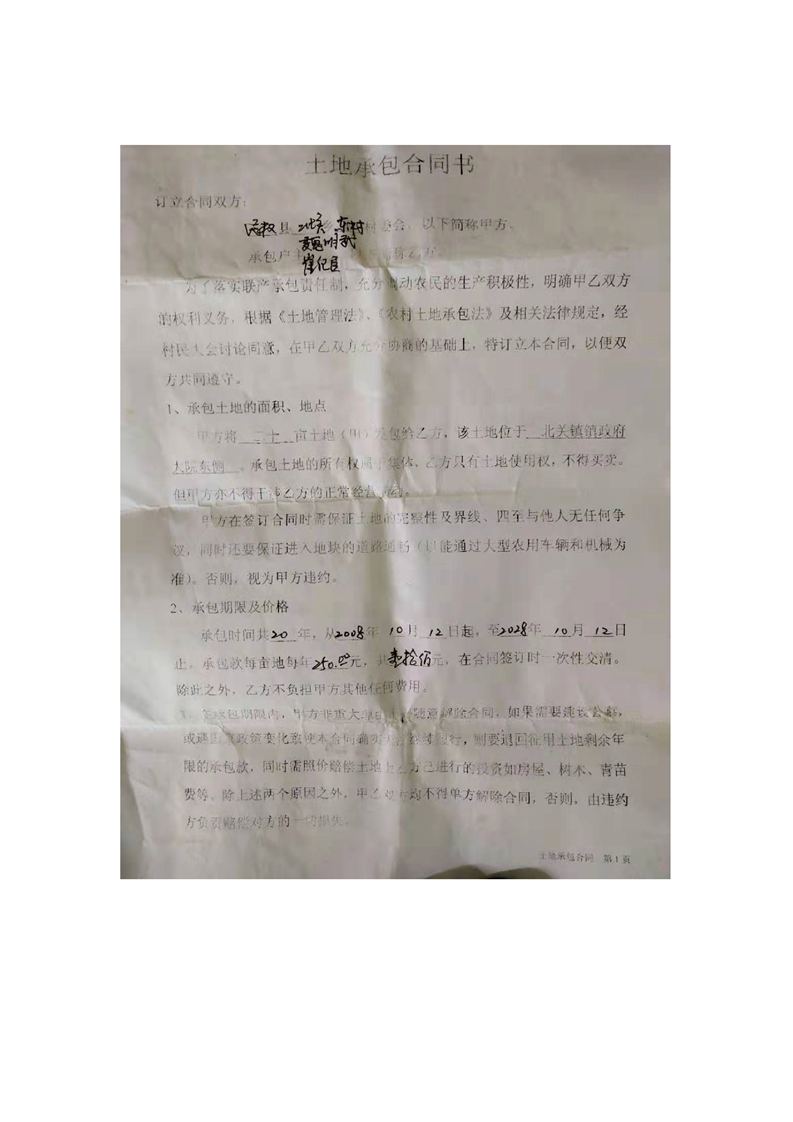 土地承包合同书
订立合同双方:
县 东村村委会,以下简称甲方。
承包户主 简称乙方。
为了落实联产承包责任制,充分调动农民的生产积极性,明确甲乙双方
的权利义务,根据《土地管理法》、《农村土地承包法》及相关法律规定,经
村民大会讨论同意,在甲乙双方充分协商的基础上,特订立本合同,以便双
方共同遵守。
1、承包土地的面积、地点
甲方将 二十 亩土地(田)发包给乙方,该土地位于 北关镇镇政府
大院东侧 。承包土地的所有权属于集体、乙方只有土地使用权,不得买卖。
但甲方亦不得干涉乙方的正常经营
甲方在签订合同时需保证土地的完整性及界线、四至与他人无任何争
议,同时还要保证进入地块的道路通畅(以能通过大型农用车辆和机械为
准)。否则,视为甲方违约。
2、承包期限及价格
承包时间共20年,从2008年10月12日起,至2028年10月12日
止,承包款每亩地每年250.00元,共 元,在合同签订时一次性交清。
除此之外,乙方不负担甲方其他任何费用。
承包期限内,甲方非重大 随意解除合同,如果需要建设公路,
或遇国家政策变化致使本合同确实 继续履行,则要退回征用土地剩余年
限的承包款,同时需照价赔偿土地上乙方已进行的投资如房屋、树木、青苗
费等。除上述两个原因之外,甲乙双方均不得单方解除合同,否则,由违约
方负责赔偿对方的一切损失。
土地承包合同 第1页